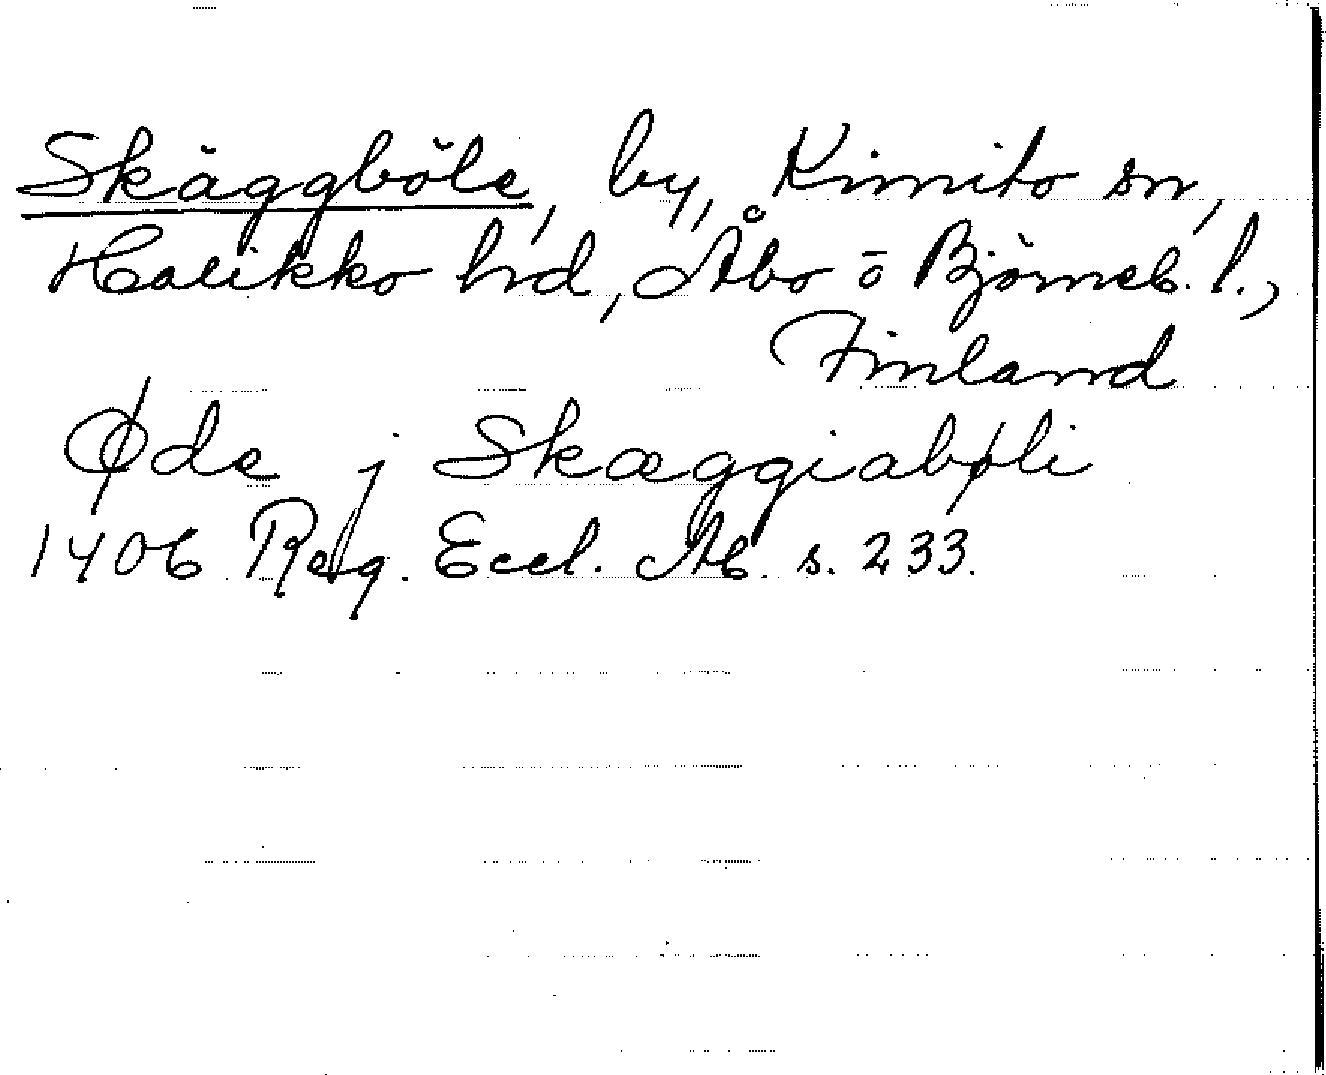 Skäggböle, by, Kimito sn,
Halikko hd, Åbo ō Björneb. l.,
Finland
Øde j Skæggiabøli
1406 Reg. Eccl. Ab. s. 233.